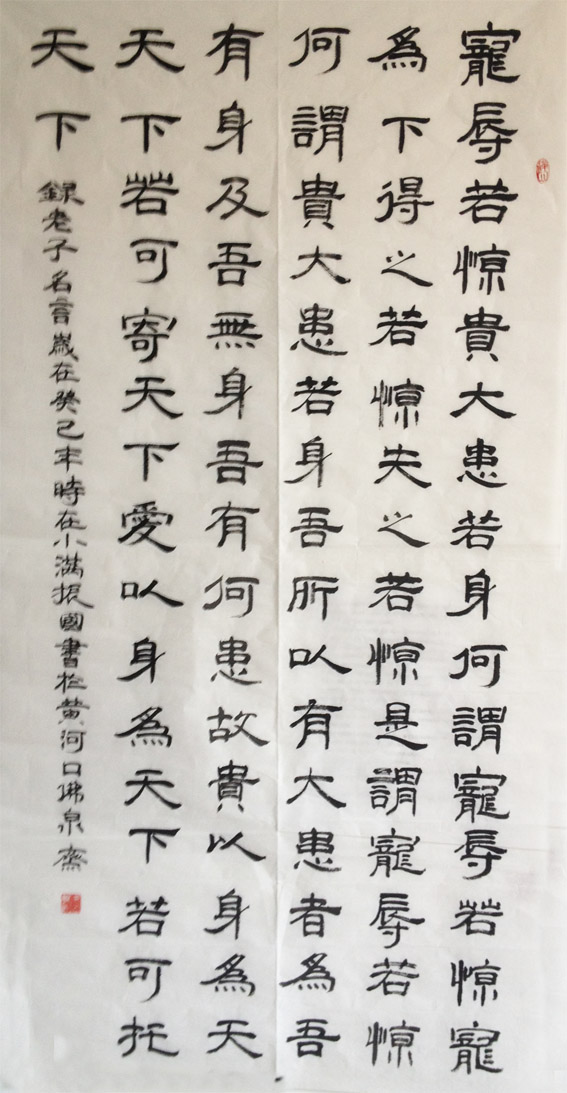 寵辱若惊貴大患若身何謂寵辱若惊寵
為下得之若惊失之若惊是謂寵辱若惊
何謂貴大患若身吾所以有大患者為吾
有身及吾無身吾有何患故貴以身為天
天下若可寄天下愛以身為天下若可托
天下
録老子名言歲在癸巳年時在小滿振國書於黃河口佛泉齋